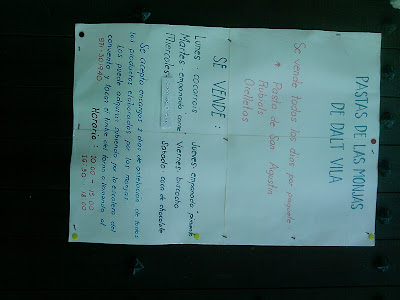 PASTAS DE LAS MONJAS
DE DALT VILA
Se vende todos los días por paquete
* Pasta de San Agustín
Rubiols
Orelletas
SE VENDE :
Lunes cocarrois
Martes empanada carne
Miercoles
Jueves empanada pimiento
Viernes bizcocho
Sabado coca de chocolate
Se acepta encargos 2 dias de antelacion de todos
los productos elaborados por las monjas
Los puede adquirir subiendo por la escalera del
convento y tocas el timbre del torno o llamando al
971-30 10 40
Horario: 10:00 - 13:00
16:30 - 18:00